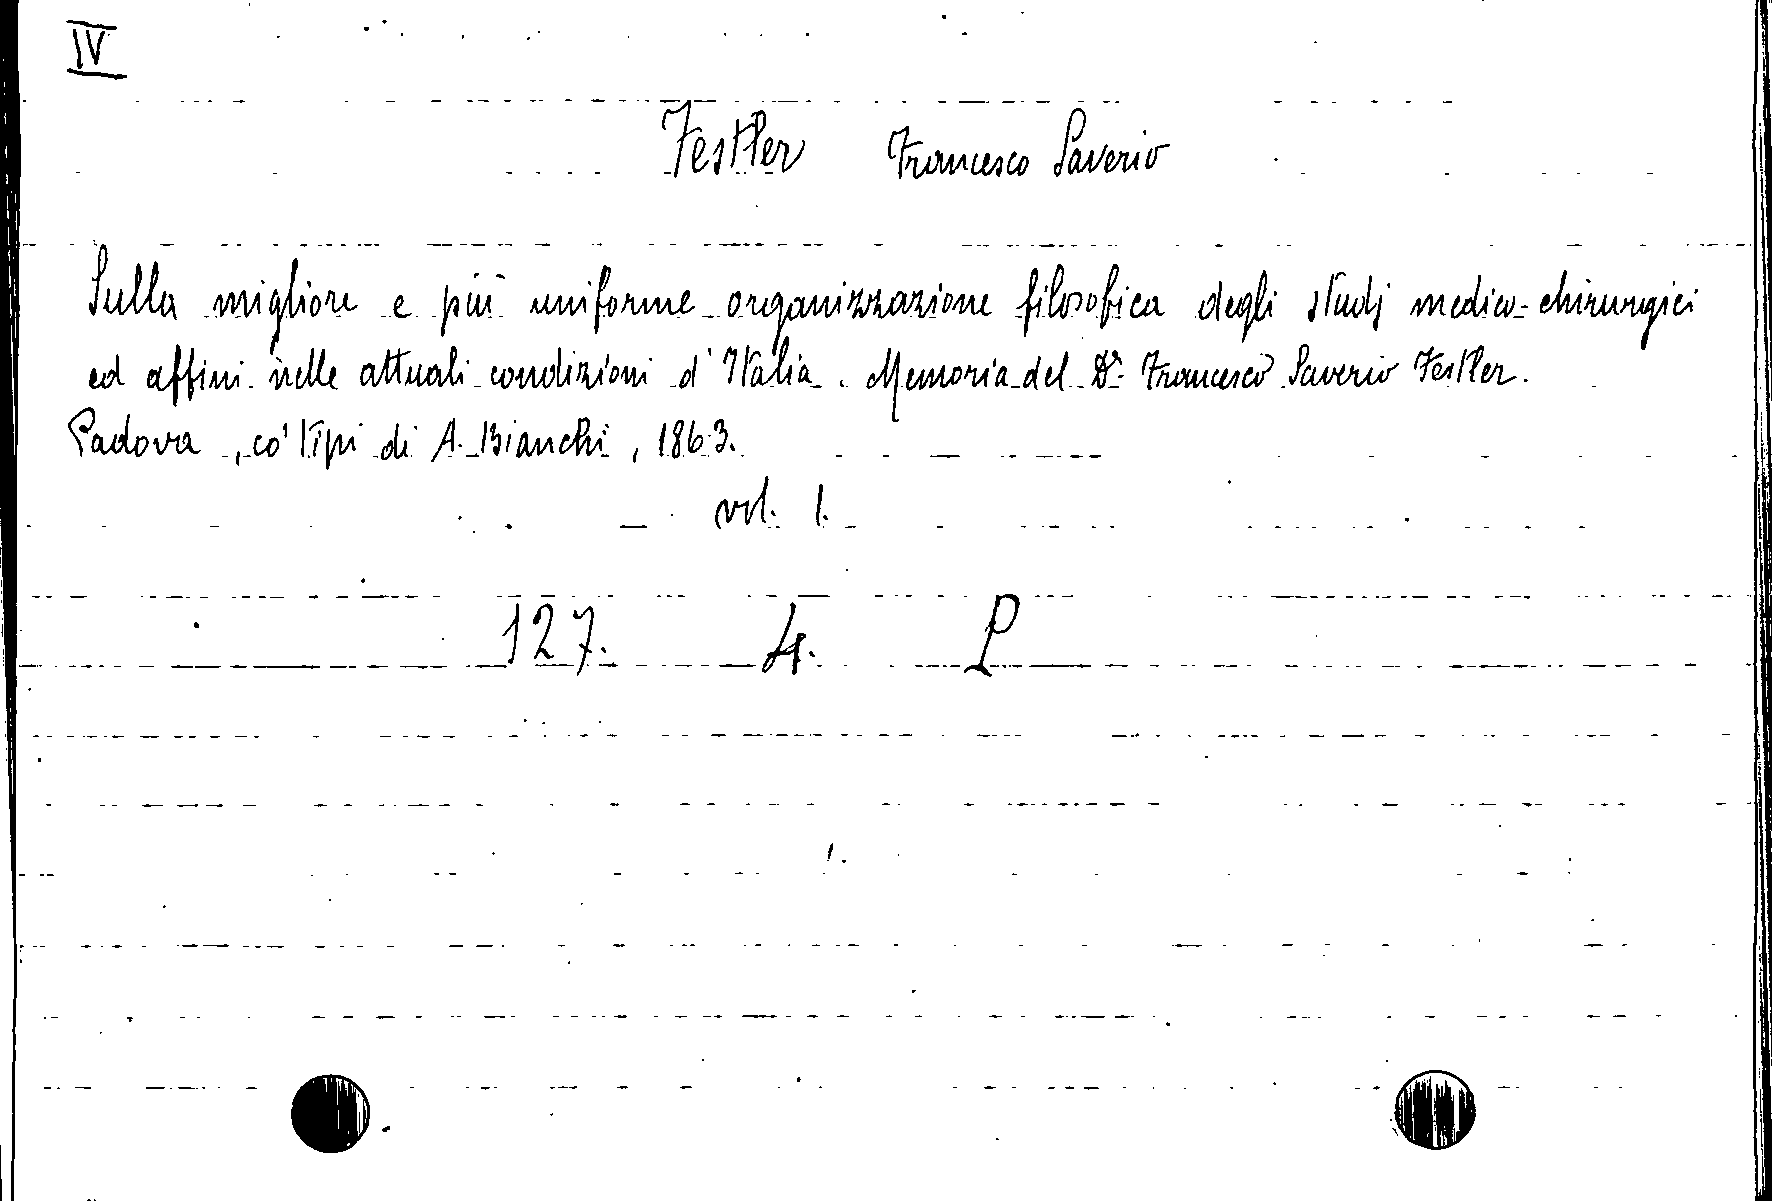 IV
Festler Francesco Saverio
Sulla migliore e più uniforme organizzazione filosofica degli studj medico-chirurgici
ed affini nelle attuali condizioni d'Italia. Memoria del Dr. Francesco Saverio Festler.
Padova, co' tipi di A. Bianchi, 1863.
vol. 1.
127. 4. P